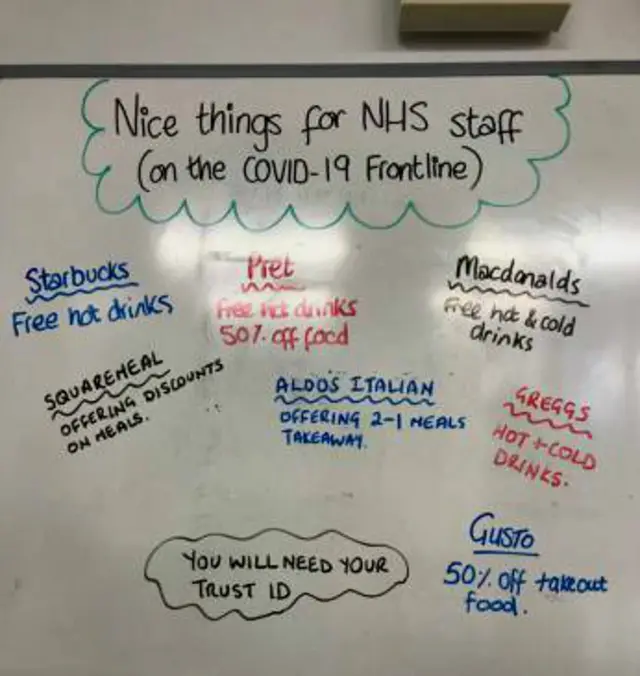 Nice things for NHS staff
(on the COVID-19 Frontline)
Starbucks
Free hot drinks
Pret
Free hot drinks
50% off food
Macdonalds
Free hot & cold
drinks
SQUAREMEAL
OFFERING DISCOUNTS
ON MEALS.
ALDOS ITALIAN
OFFERING 2-1 MEALS
TAKEAWAY.
GREGGS
HOT + COLD
DRINKS.
YOU WILL NEED YOUR
TRUST ID
GUSTO
50% off takeout
food.